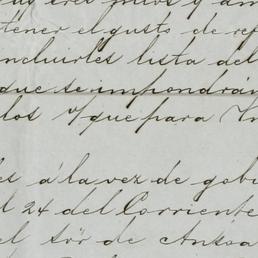 tener el gusto de ref
incluirles lista del
que se impondrán
los y que para In
es á la vez de gobi
l 24 del Corriente
el sõr de Ansoa